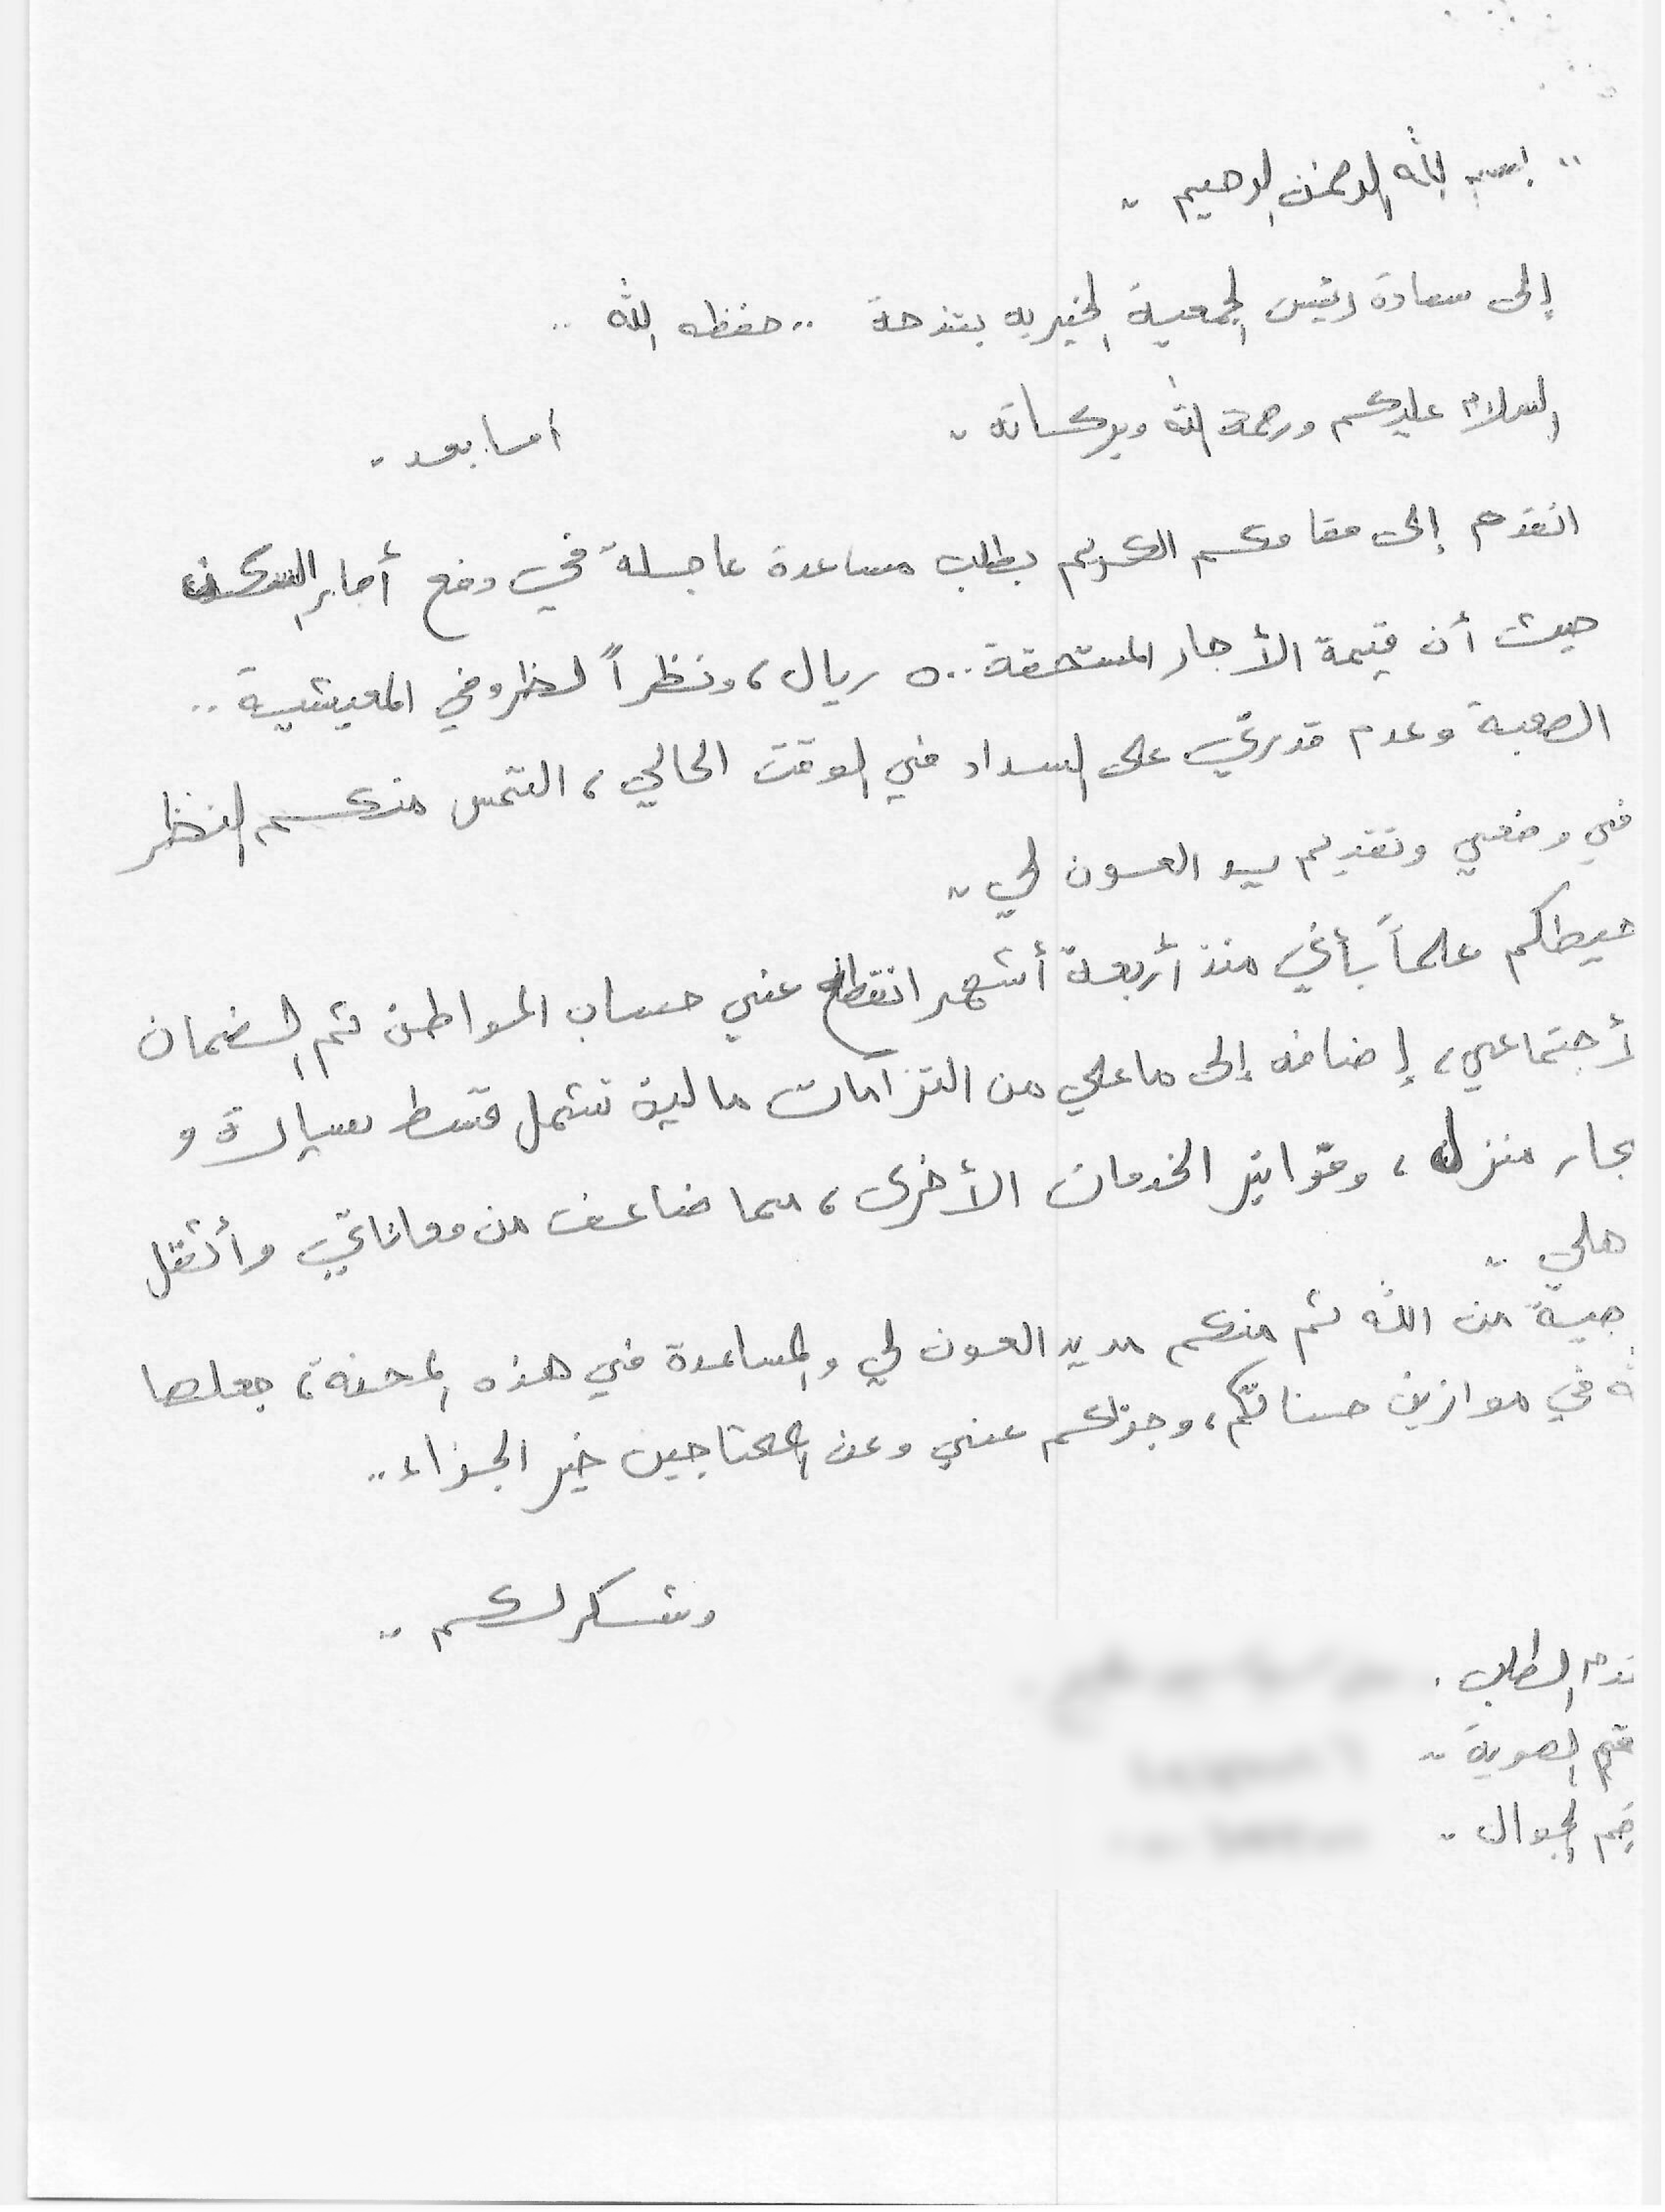 .. بسم الله الرحمن الرحيم ..
إلى سعادة رئيس الجمعية الخيريه بتندحة .. حفظه الله ..
السلام عليكم ورحمة الله وبركاته ..
اما بعد ..
اتقدم إلى مقامكم الكريم بطلب مساعدة عاجلة في دفع أجار السكن
حيث أن قيمة الأجار المستحقة ٥٠٠ ريال، ونظراً لظروفي المعيشية ..
الصعبة وعدم قدرتي على السداد في الوقت الحالي، التمس منكم النظر
في وضعي وتقديم يد العون لي ..
حيطكم علماً بأني منذ أربعة أشهر انقطع عني حساب المواطن ثم الضمان
لأجتماعي، إضافه إلى ما علي من التزامات مالية تشمل قسط سيارة و
يجار منزل، وفواتير الخدمات الأخرى، مما ضاعف من معاناتي وأثقل
هلي ..
جيةً من الله ثم منكم مد يد العون لي والمساعدة في هذه المحنة، جعلها
ه في موازين حسناتكم، وجزاكم عني وعن المحتاجين خير الجزاء ..
وشكر لكم ..
قدم الطلب .
قم الهوية ..
قم الجوال ..